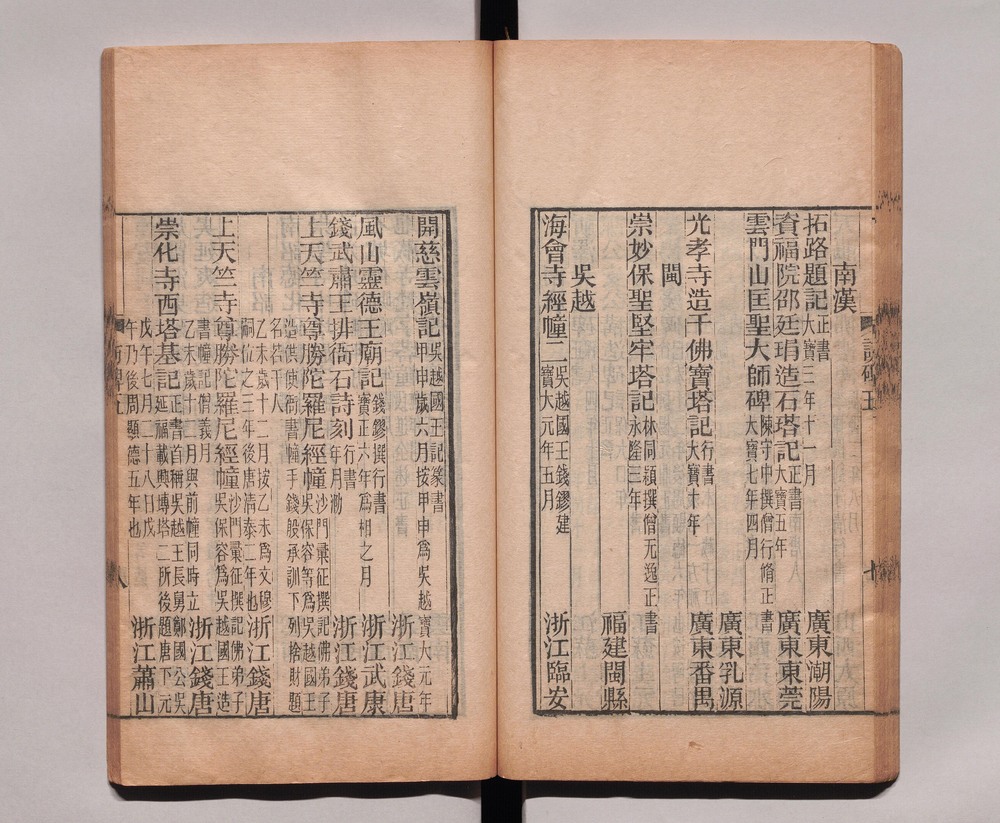 南漢
拓路題記正書
大寶三年十一月
廣東潮陽
資福院邵廷琄造石塔記正書
大寶五年
廣東東莞
雲門山匡聖大師碑陳守中撰僧行脩正書
大寶七年四月
廣東乳源
光孝寺造千佛寶塔記行書
大寶十年
廣東番禺
閩
崇妙保聖堅牢塔記林同穎撰僧无逸正書
永隆三年
福建閩縣
吳越
海會寺經幢二吳越國王錢鏐建
寶大元年五月
浙江臨安
開慈雲嶺記吳越國王記篆書
甲申歲六月按甲申爲吳越寶大元年
浙江錢唐
風山靈德王廟記錢鏐撰行書
寶正六年爲相之月
浙江武康
錢武肅王排衙石詩刻行書
年月泐
浙江錢唐
上天竺寺尊勝陀羅尼經幢沙門彙征撰記佛弟子
吳保容等爲吳越國王
造供使衙書幢手錢殷承訓下列捨財題
名若干人
乙未歲十二月按乙未爲文穆
嗣位之三年後唐清泰二年也
浙江錢唐
上天竺寺尊勝陀羅尼經幢沙門彙征撰記佛弟子
吳保容爲吳越國王造
書幢記僧義月
乙未歲十二月與前幢同時立
浙江錢唐
崇化寺西塔基記正書首稱吳越王長舅鄭國公吳
延福載興塼塔二所後題唐下元
戊午七月二十八日戊
午乃後周顯德五年也
浙江蕭山
八